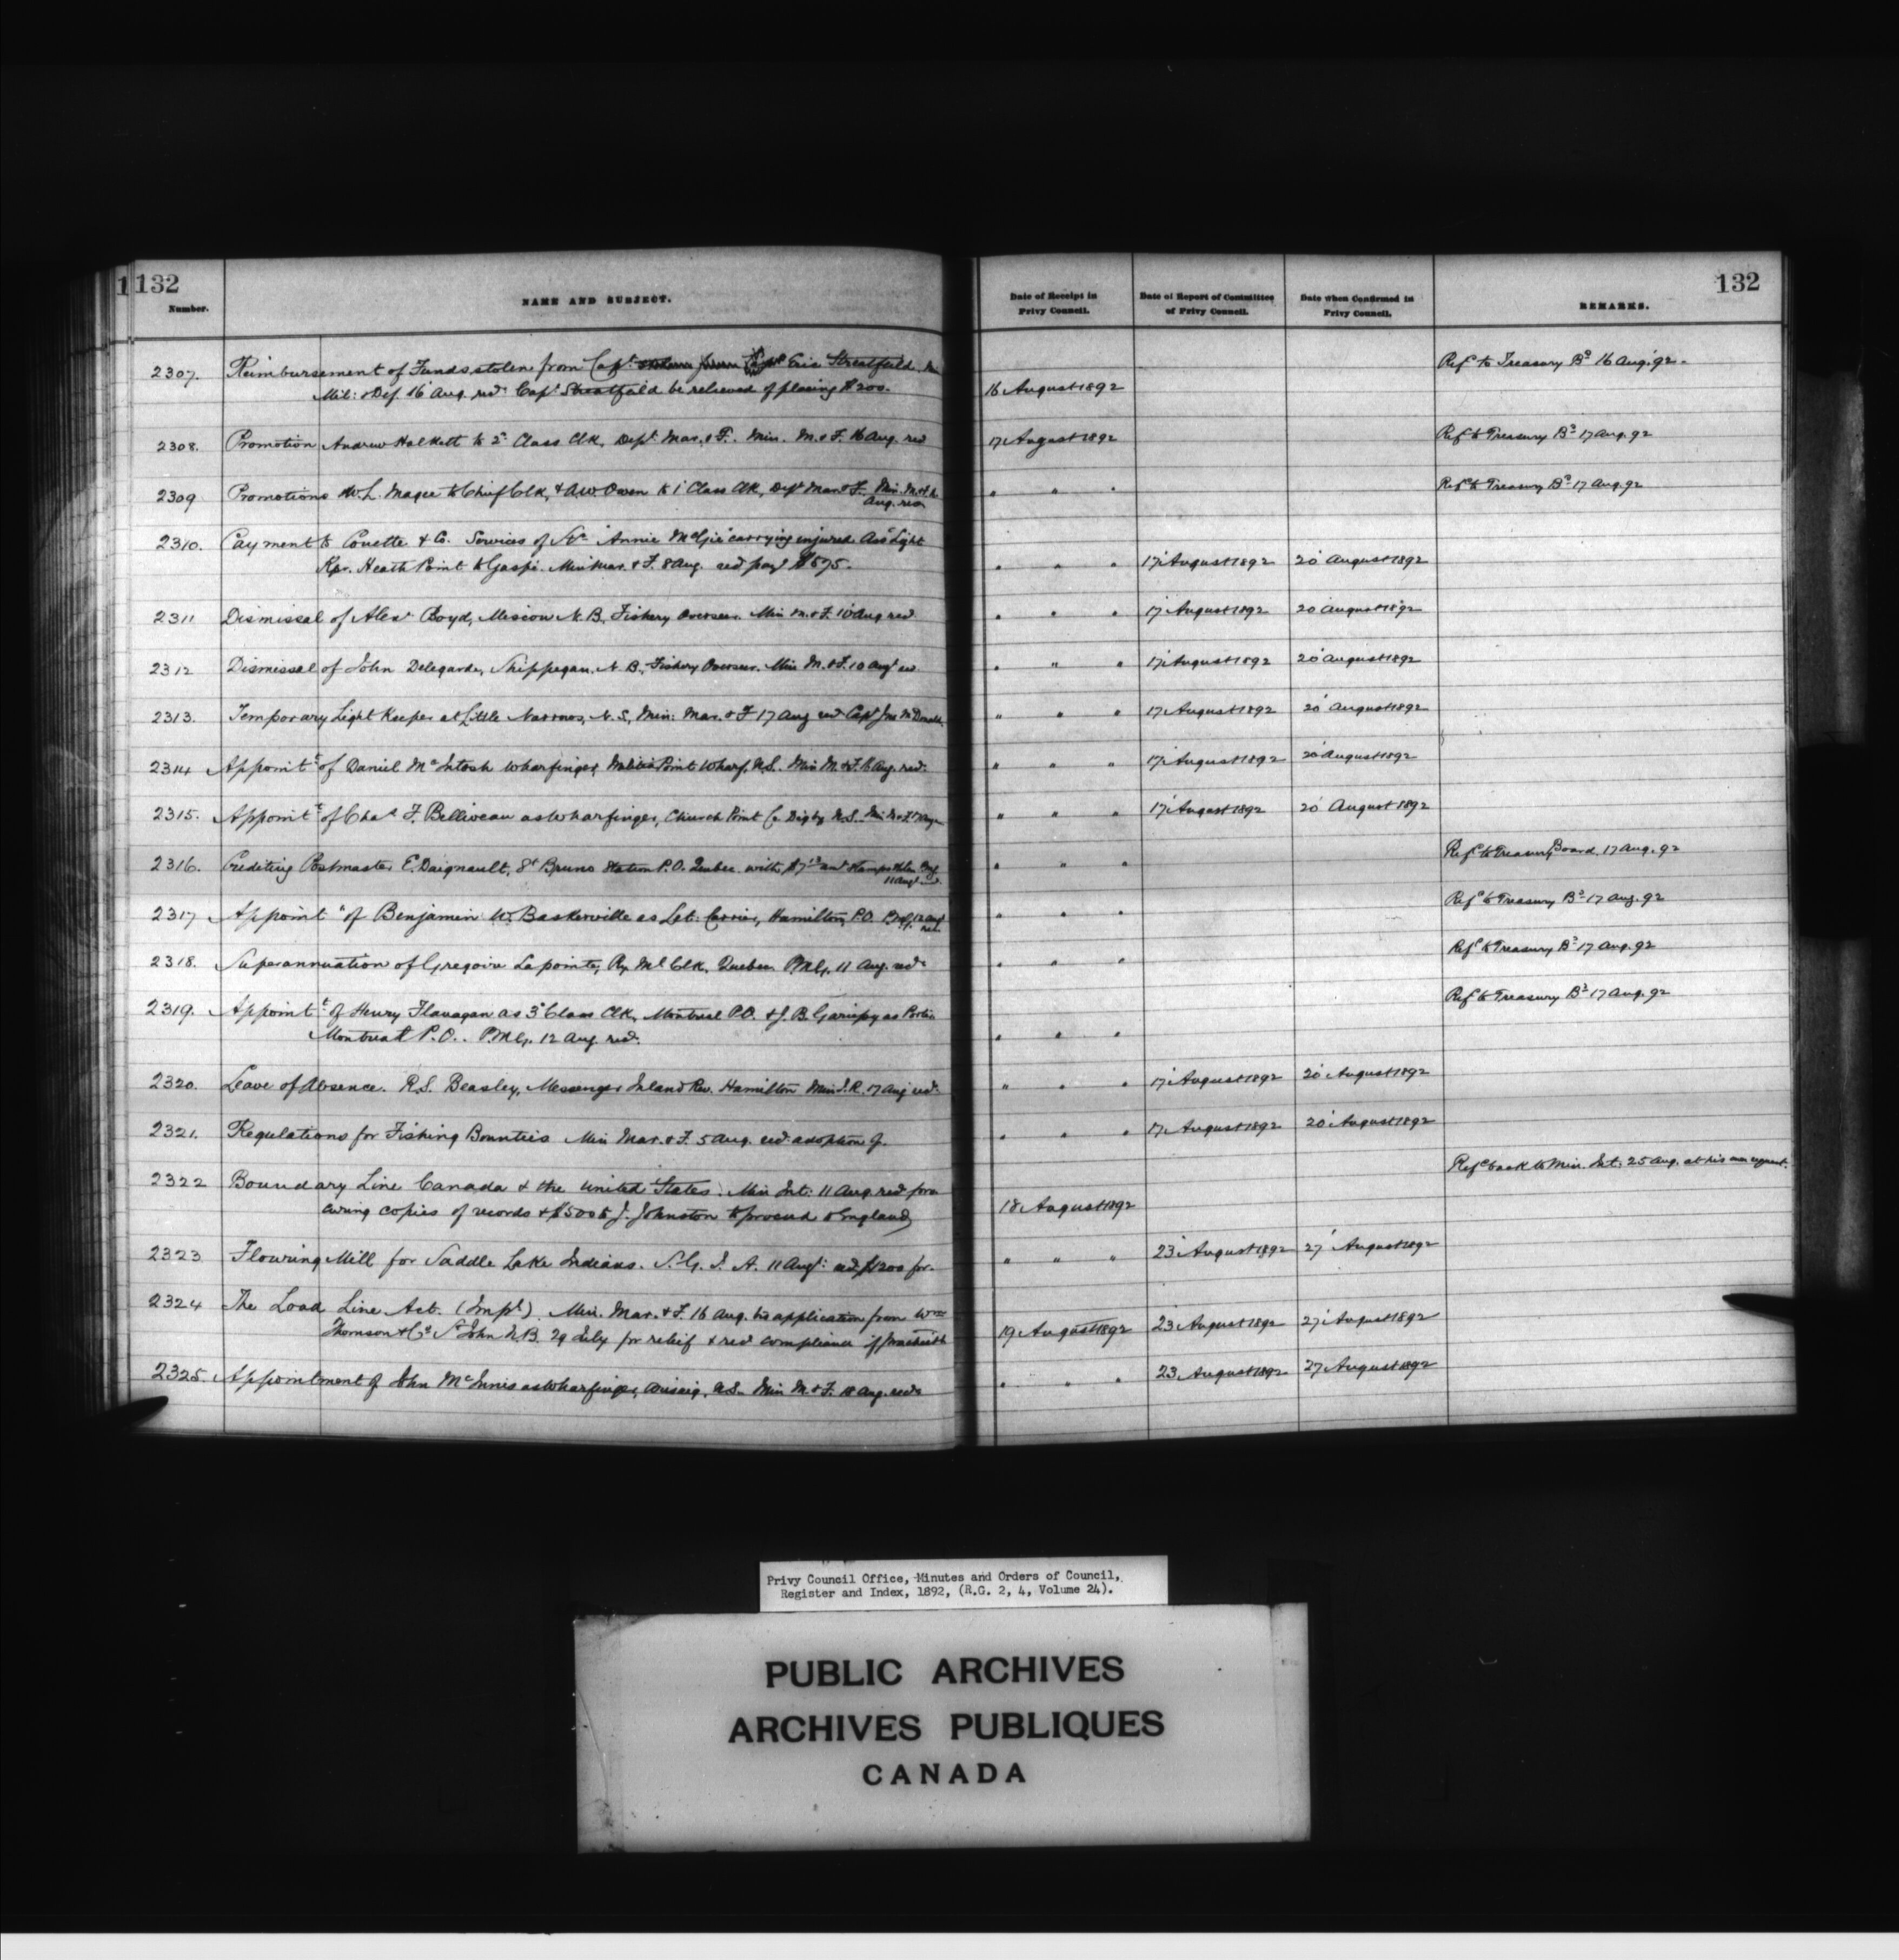 132
132
Number.
NAME AND SUBJECT.
Date of Receipt in Privy Council.
Date of Report of Committee of Privy Council.
Date when Confirmed in Privy Council.
REMARKS.
2307. Reimbursement of Funds stolen from Capt Eric Streatfeild. Min
Mil: & Def. 16 Aug. recd Capt Streatfeild be relieved of placing $200. 16 August 1892 Refd to Treasury Bd 16 Aug. 92.
2308. Promotion Andrew Halkett to 2d Class Clk, Dept Mar. & F. Min. M. & F. 16 Aug. red 17 August 1892 Refd to Treasury Bd 17 Aug. 92
2309 Promotions W. L. Magee to Chief Clk, & A.W. Owen to 1' Class Clk, Dept Mar & F. Min. M. & F.
Aug. red " " " Refd to Treasury Bd 17 Aug. 92
2310. Payment to Couette & Co. Services of "Annie McGie" carrying injured Asst Light
Kpr. Heath Point to Gaspé. Min Mar. & F. 8 Aug. red payt $575. " " " 17 August 1892 20 August 1892
2311 Dismissal of Alexr Boyd, Miscou N.B, Fishery Overseer. Min M. & F. 10 Aug red " " " 17 August 1892 20 August 1892
2312 Dismissal of John Delegarde, Shippegan, N.B., Fishery Overseer. Min M. & F. 10 Augt red " " " 17 August 1892 20 August 1892
2313. Temporary Light Keeper at Little Narrows, N.S, Min: Mar. & F 17 Aug red Capt Jno McDonald. " " " 17 August 1892 20 August 1892
2314 Appointt of Daniel McIntosh Wharfinger, Point Wharf, N.S. Min M. & F. 16 Aug. red. " " " 17 August 1892 20 August 1892
2315. Appointt of Chas F. Belliveau as Wharfinger, Church Point Co Digby N.S. Min M & F " " " 17 August 1892 20 August 1892
2316. Crediting Postmaster E. Daignault, St Bruno Station P.O. Quebec with $7 Stamps stolen PMG
11 Augt " " " Refd to Treasury Board 17 Aug. 92
2317 Appointt of Benjamin W. Baskerville as Let. Carrier, Hamilton, P.O. PMG. 12 Aug
red. " " " Refd to Treasury Bd 17 Aug. 92
2318. Superannuation of Gregoire Lapointe, Ry Ml Clk. Quebec. PMG. 11 Aug. red. " " " Refd to Treasury Bd 17 Aug. 92
2319. Appointt of Henry Flanagan as 3d Class Clk, Montreal P.O. & J. B. Gariepy as Porter
Montreal P.O.. PMG. 12 Aug. red. " " " Refd to Treasury Bd 17 Aug. 92
2320. Leave of Absence. R.S. Beasley, Messenger Inland Rev. Hamilton Min I.R. 17 Aug red. " " " 17 August 1892 20 August 1892
2321. Regulations for Fishing Bounties Min Mar. & F. 5 Aug. red. adoption of. " " " 17 August 1892 20 August 1892
2322 Boundary Line Canada & the United States. Min Int. 11 Aug. red pro-
curing copies of records & $500 to J. Johnston to proceed to England 18 August 1892 Refd back to Min. Int. 25 Aug. at his own request.
2323 Flouring Mill for Saddle Lake Indians. S.G.I.A. 11 Augt: red $1200 for. " " " 23 August 1892 27 August 1892
2324 The Load Line Act. (Impl). Min. Mar. & F. 16 Aug. to application from Wm
Thomson & Co St John N.B. 29 July for relief & red compliance if 19 August 1892 23 August 1892 27 August 1892
2325. Appointment of John McInnis as Wharfinger, Arisaig, N.S. Min M. & F. 18 Aug. red. " " " 23 August 1892 27 August 1892
Privy Council Office, Minutes and Orders of Council,
Register and Index, 1892, (R.G. 2, 4, Volume 24).
PUBLIC ARCHIVES
ARCHIVES PUBLIQUES
CANADA